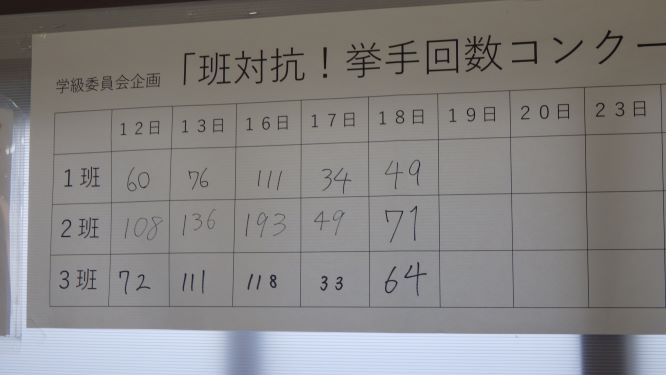 学級委員会企画 「班対抗！挙手回数コンクー
12日 13日 16日 17日 18日 19日 20日 23日
1班 60 76 111 34 49
2班 108 136 193 49 71
3班 72 111 118 33 64